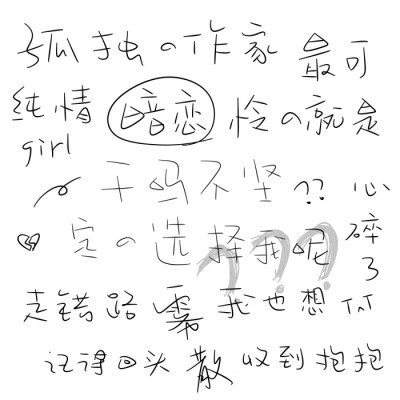 孤独の作家 最可
纯情 暗恋 怜の就是
girl
干吗不坚?? 心
定の选择我呢 碎
???
了
走错路 我也想
记得回头 散 收到抱抱